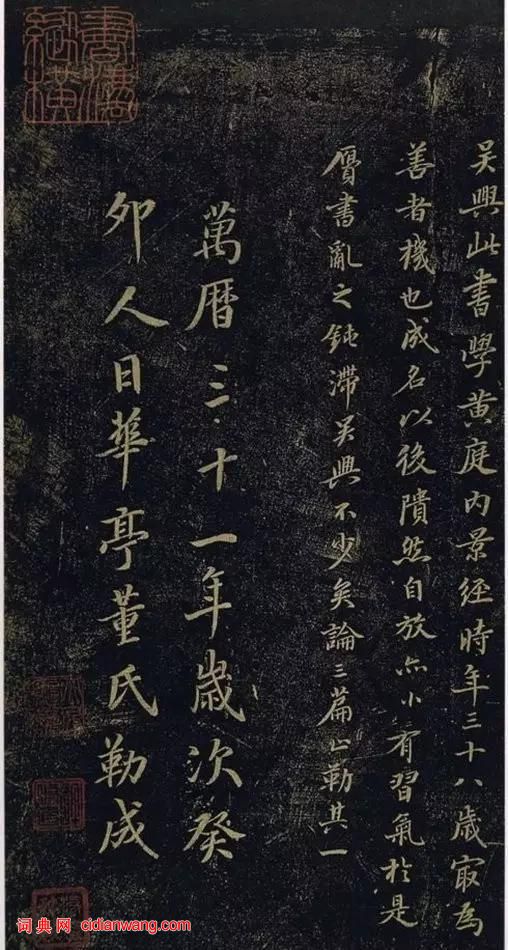 吴興此書學黄庭内景經時年三十八歲㝡為
善者機也成名以後隤然自放亦小有習氣於是
贗書亂之鈍滯吴興不少矣論三篇止勒其一
萬曆三十一年歲次癸
卯人日華亭董氏勒成
词典网 cidianwang.com